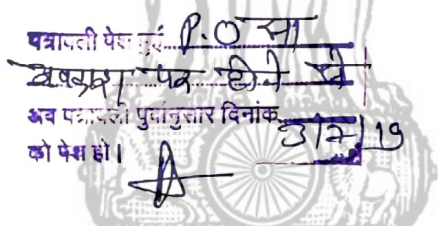 पत्रावली पेश हुई P.O सा
अवकाश पर होने से
अब पत्रावली पुर्वानुसार दिनांक 3/7/19
को पेश हो।